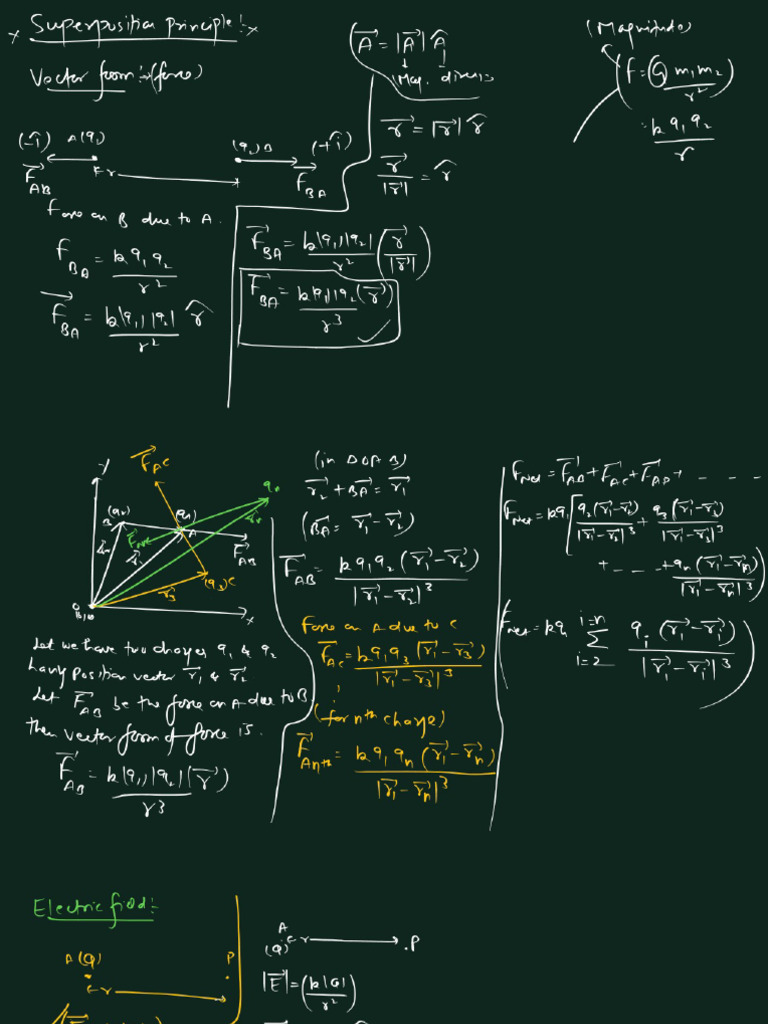 Superposition principle :-
Vector form :- (force)
(-î) A(q₁) (q₂)B (+î)
F⃗_AB r F⃗_BA
Force on B due to A.
F_BA = k q₁ q₂ / r²
F⃗_BA = k|q₁||q₂| / r² r̂
(A⃗ = |A⃗| Â
Mag. direcn
r⃗ = |r⃗| r̂
r⃗ / |r⃗| = r̂
F⃗_BA = k|q₁||q₂| / r² (r⃗ / |r⃗|)
F⃗_BA = k|q₁||q₂ (r⃗) / r³
(Magnitude)
(F = G m₁ m₂ / r²)
= k q₁ q₂ / r
y
F⃗_AC
(q₂) B (q₁) A
F⃗_AB
(q₃) C
r⃗₃
x
Let we have two charges q₁ & q₂
having position vector r⃗₁ & r⃗₂
Let F⃗_AB be the force on A due to B
then vector form of force is.
F⃗_AB = k|q₁||q₂| (r⃗) / r³
(in Δ OAB)
r⃗₂ + B⃗A = r⃗₁
(B⃗A = r⃗₁ - r⃗₂)
F⃗_AB = k q₁ q₂ (r⃗₁ - r⃗₂) / |r⃗₁ - r⃗₂|³
Force on A due to C
F⃗_AC = k q₁ q₃ (r⃗₁ - r⃗₃) / |r⃗₁ - r⃗₃|³
(for nth charge)
F⃗_Anth = k q₁ qₙ (r⃗₁ - r⃗ₙ) / |r⃗₁ - r⃗ₙ|³
F_Net = F⃗_AB + F⃗_AC + F⃗_AD + - - - -
F_Net = kq₁ [q₂(r⃗₁ - r⃗₂) / |r⃗₁ - r⃗₂|³ + q₃(r⃗₁ - r⃗₃) / |r⃗₁ - r⃗₃|³
+ - - - - + qₙ (r⃗₁ - r⃗ₙ) / |r⃗₁ - r⃗ₙ|³)
F_Net = kq₁ Σ i=2 i=n q_i (r⃗₁ - r⃗_i) / |r⃗₁ - r⃗_i|³)
Electric field :-
A(Q) P
r
A
(Q) r .P
|E⃗| = (k|Q| / r²)